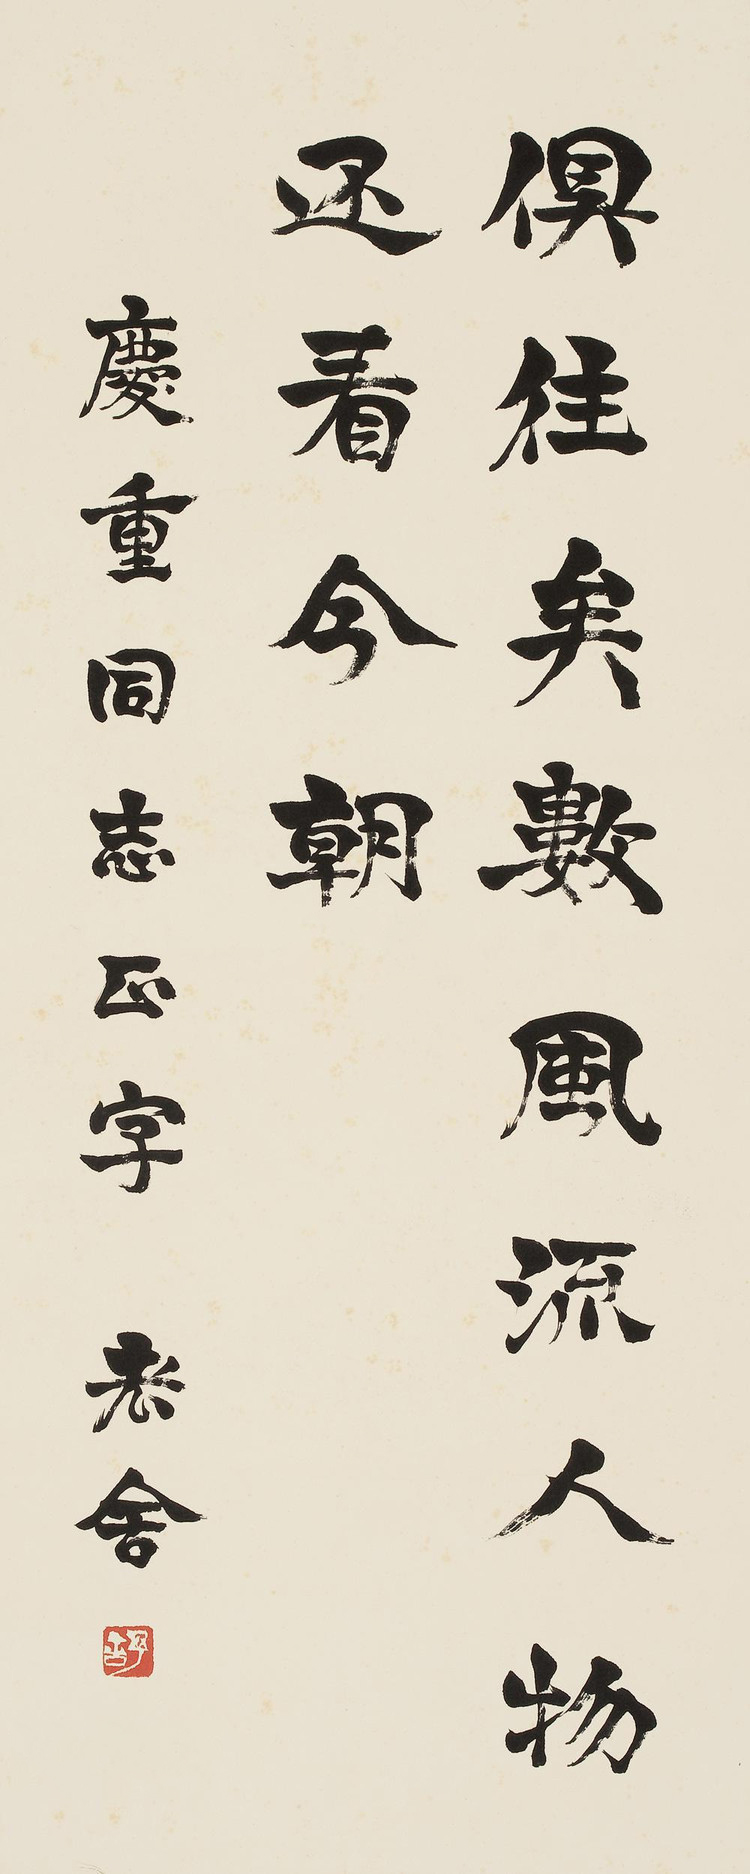 俱往矣數風流人物
还看今朝
慶重同志正字 老舍
舒